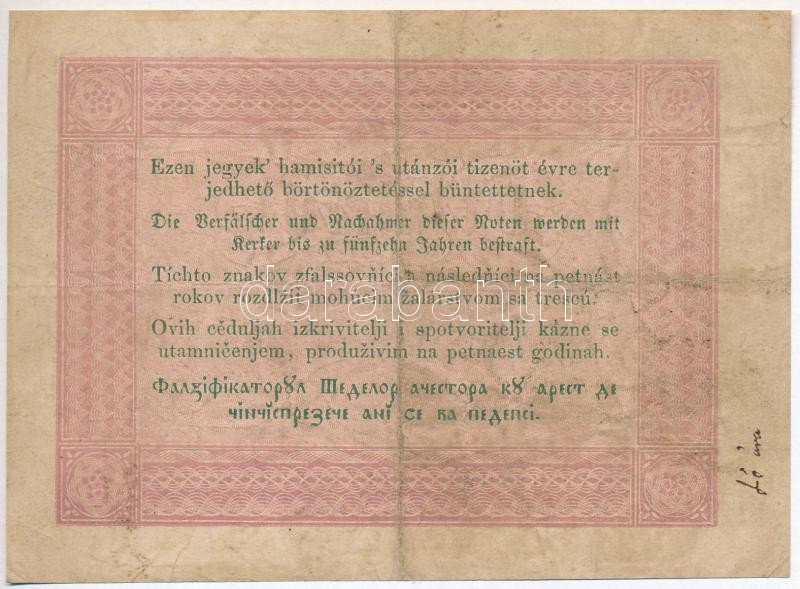 Ezen jegyek' hamisitói 's utánzói tizenöt évre ter-
jedhető börtönöztetéssel büntettetnek.
Die Verfälscher und Nachahmer dieser Noten werden mit
Kerker bis zu fünfzehn Jahren bestraft.
Tíchto znakov zfalssovňíci a následňíci petnást
rokov rozdlžiť mohucím žalárstvom sa trescú.
Ovih cěduljah izkrivitelji i spotvoritelji kazne se
utamničenjem, produživim na petnaest godinah.
Фалзіфікаторꙋл Шеделор ачестора кꙋ арест де
чінчіспрезече ані се ва педепсі.
darabanth
ára